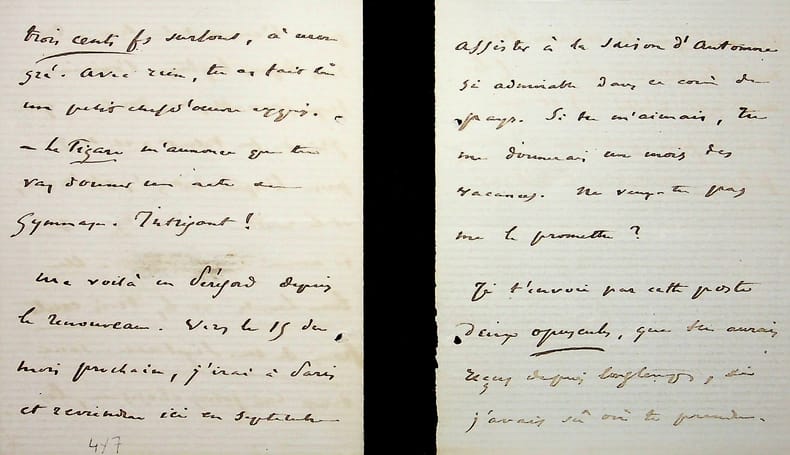 trois cents fs surtout, à mon
gré. Avec rien, tu as fait là
un petit chef d'œuvre exquis. -
- Le Figaro m'annonce que tu
vas donner un acte au
Gymnase. Intrigant !
Me voilà en Périgord depuis
le renouveau. Vers le 15 du
mois prochain, j'irai à Paris
et reviendrai ici en Septembre
417
assister à la saison d'Automne
si admirable dans ce coin de
pays. Si tu m'aimais, tu
me donnerais un mois des
vacances. Ne veux-tu pas
me le promettre ?
Je t'envoie par cette poste
deux opuscules, que tu aurais
reçus depuis longtemps, si
j'avais sû où te prendre.